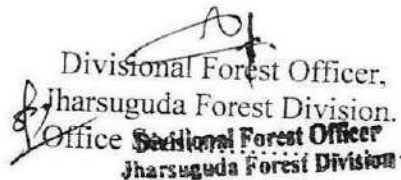 Divisional Forest Officer,
Jharsuguda Forest Division.
Office
Divisional Forest Officer
Jharsuguda Forest Division